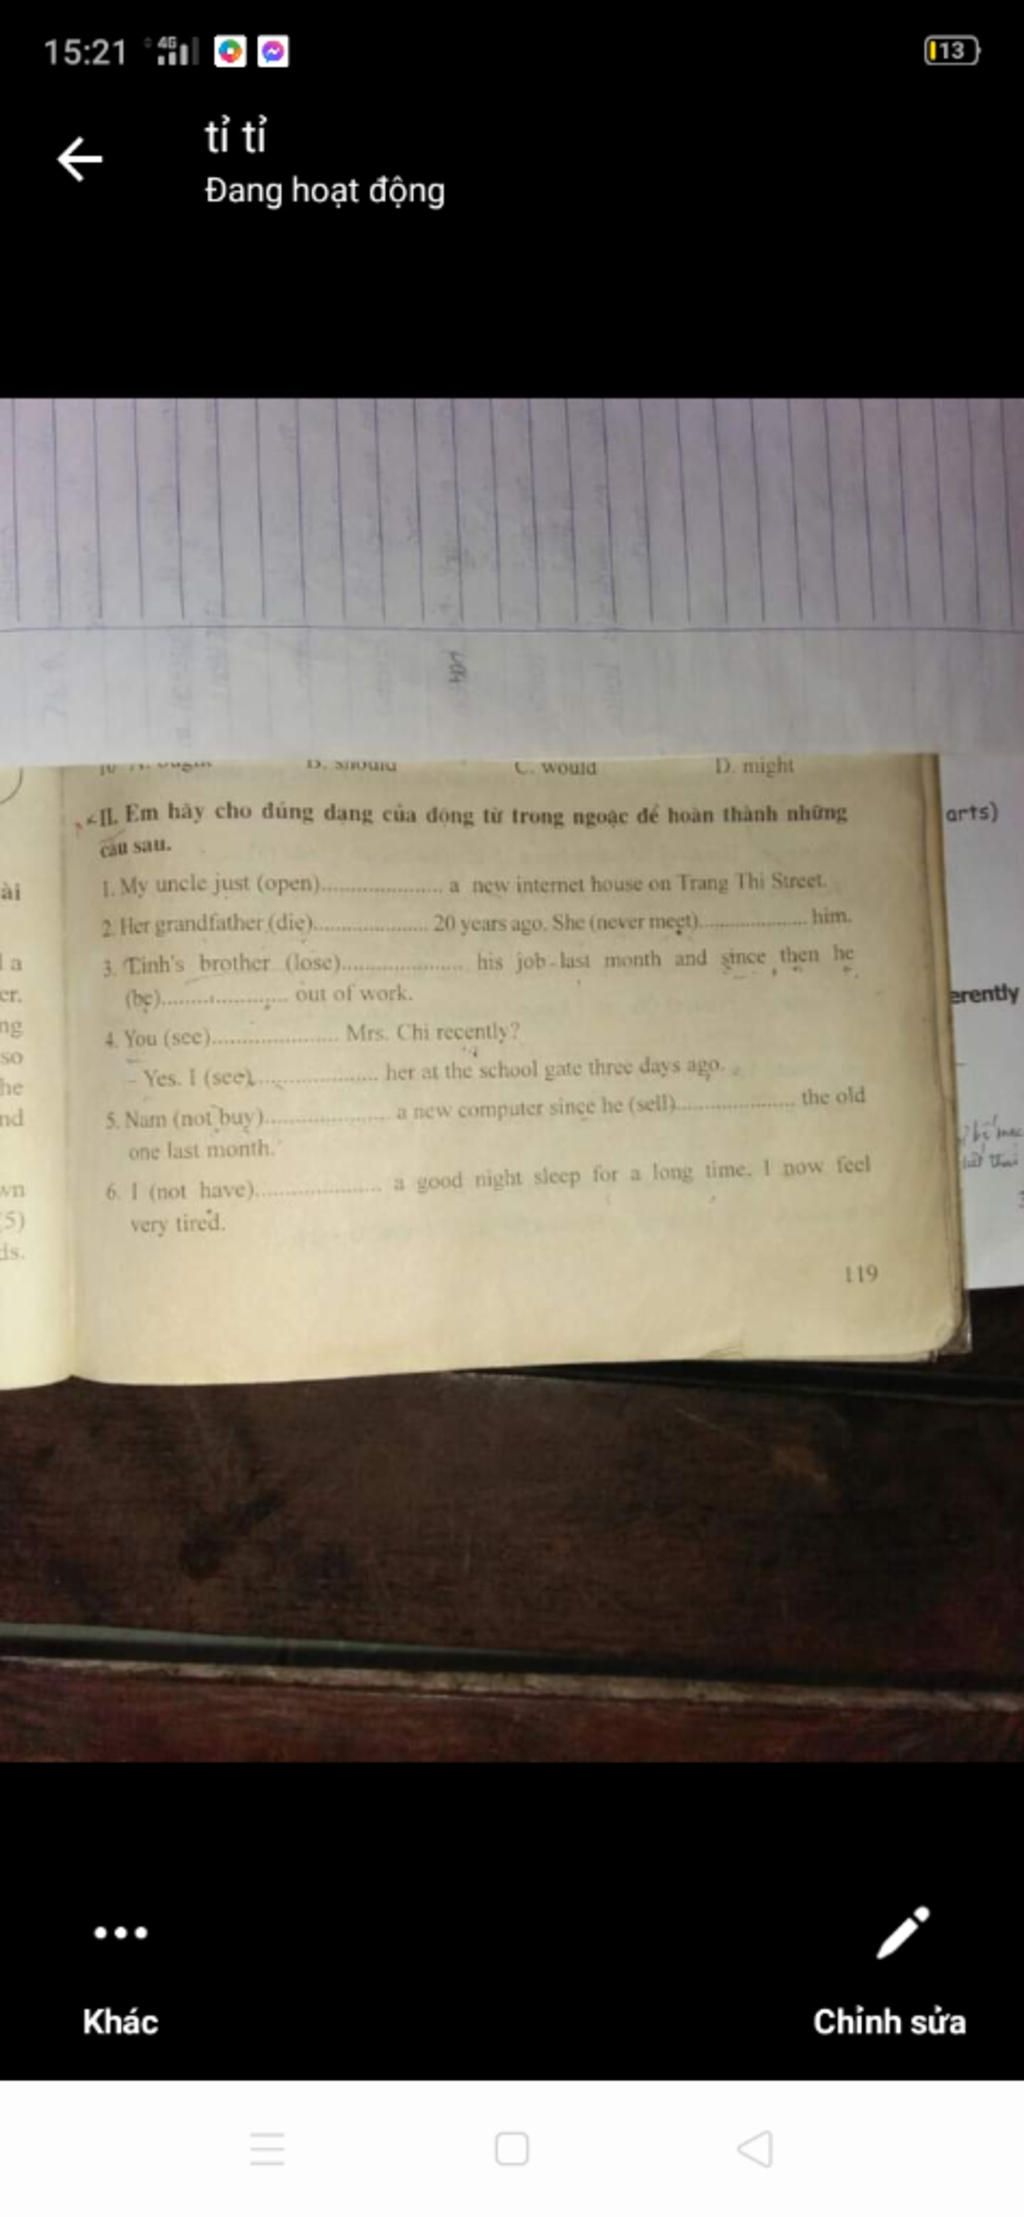 15:21 4G 13
tỉ tỉ
Đang hoạt động
B. should C. would D. might
II. Em hãy cho đúng dạng của động từ trong ngoặc để hoàn thành những
câu sau.
1. My uncle just (open).................... a new internet house on Trang Thi Street.
2. Her grandfather (die).................... 20 years ago. She (never meet).................... him.
3. Tinh's brother (lose).................... his job last month and since then he
(be).................... out of work.
4. You (see).................... Mrs. Chi recently?
- Yes. I (see).................... her at the school gate three days ago.
5. Nam (not buy).................... a new computer since he (sell).................... the old
one last month.
6. I (not have).................... a good night sleep for a long time. I now feel
very tired.
119
ài
a
er.
ng
so
he
nd
wn
5)
ds.
arts)
erently
Khác
Chỉnh sửa